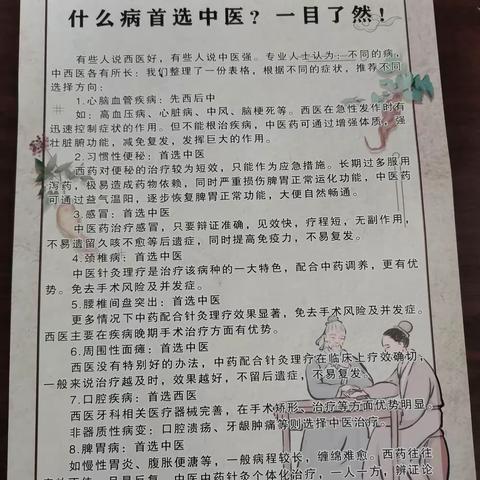 什么病首选中医？一目了然！
有些人说西医好，有些人说中医强。专业人士认为：不同的病，
中西医各有所长：我们整理了一份表格，根据不同的症状，推荐不同
选择方向：
1.心脑血管疾病：先西后中
如：高血压病、心脏病、中风、脑梗死等。西医在急性发作时有
迅速控制症状的作用。但不能根治疾病，中医药可通过增强体质，强
壮脏腑功能，减免复发，发挥巨大的作用。
2.习惯性便秘：首选中医
西药对便秘的治疗较为短效，只能作为应急措施。长期过多服用
泻药，极易造成药物依赖，同时严重损伤脾胃正常运化功能，中医药
可通过益气温阳，逐步恢复脾胃正常功能，大便自然畅通。
3.感冒：首选中医
中医药治疗感冒，只要辩证准确，见效快，疗程短，无副作用，
不易遗留久咳不愈等后遗症，同时提高免疫力，不易复发。
4.颈椎病：首选中医
中医针灸理疗是治疗该病种的一大特色，配合中药调养，更有优
势。免去手术风险及并发症。
5.腰椎间盘突出：首选中医
更多情况下中药配合针灸理疗效果显著，免去手术风险及并发症。
西医主要在疾病晚期手术治疗方面有优势。
6.周围性面瘫：首选中医
西医没有特别好的办法，中药配合针灸理疗在临床上疗效确切，
一般来说治疗越及时，效果越好，不留后遗症，不易复发。
7.口腔疾病：首选西医
西医牙科相关医疗器械完善，在手术矫形、治疗等方面优势明显。
非器质性病变：口腔溃疡、牙龈肿痛等则选择中医治疗。
8.脾胃病：首选中医
如慢性胃炎、腹胀便溏等，一般病程较长，缠绵难愈。西药往往
中医中药针灸个体化治疗，一人一方，辨证论